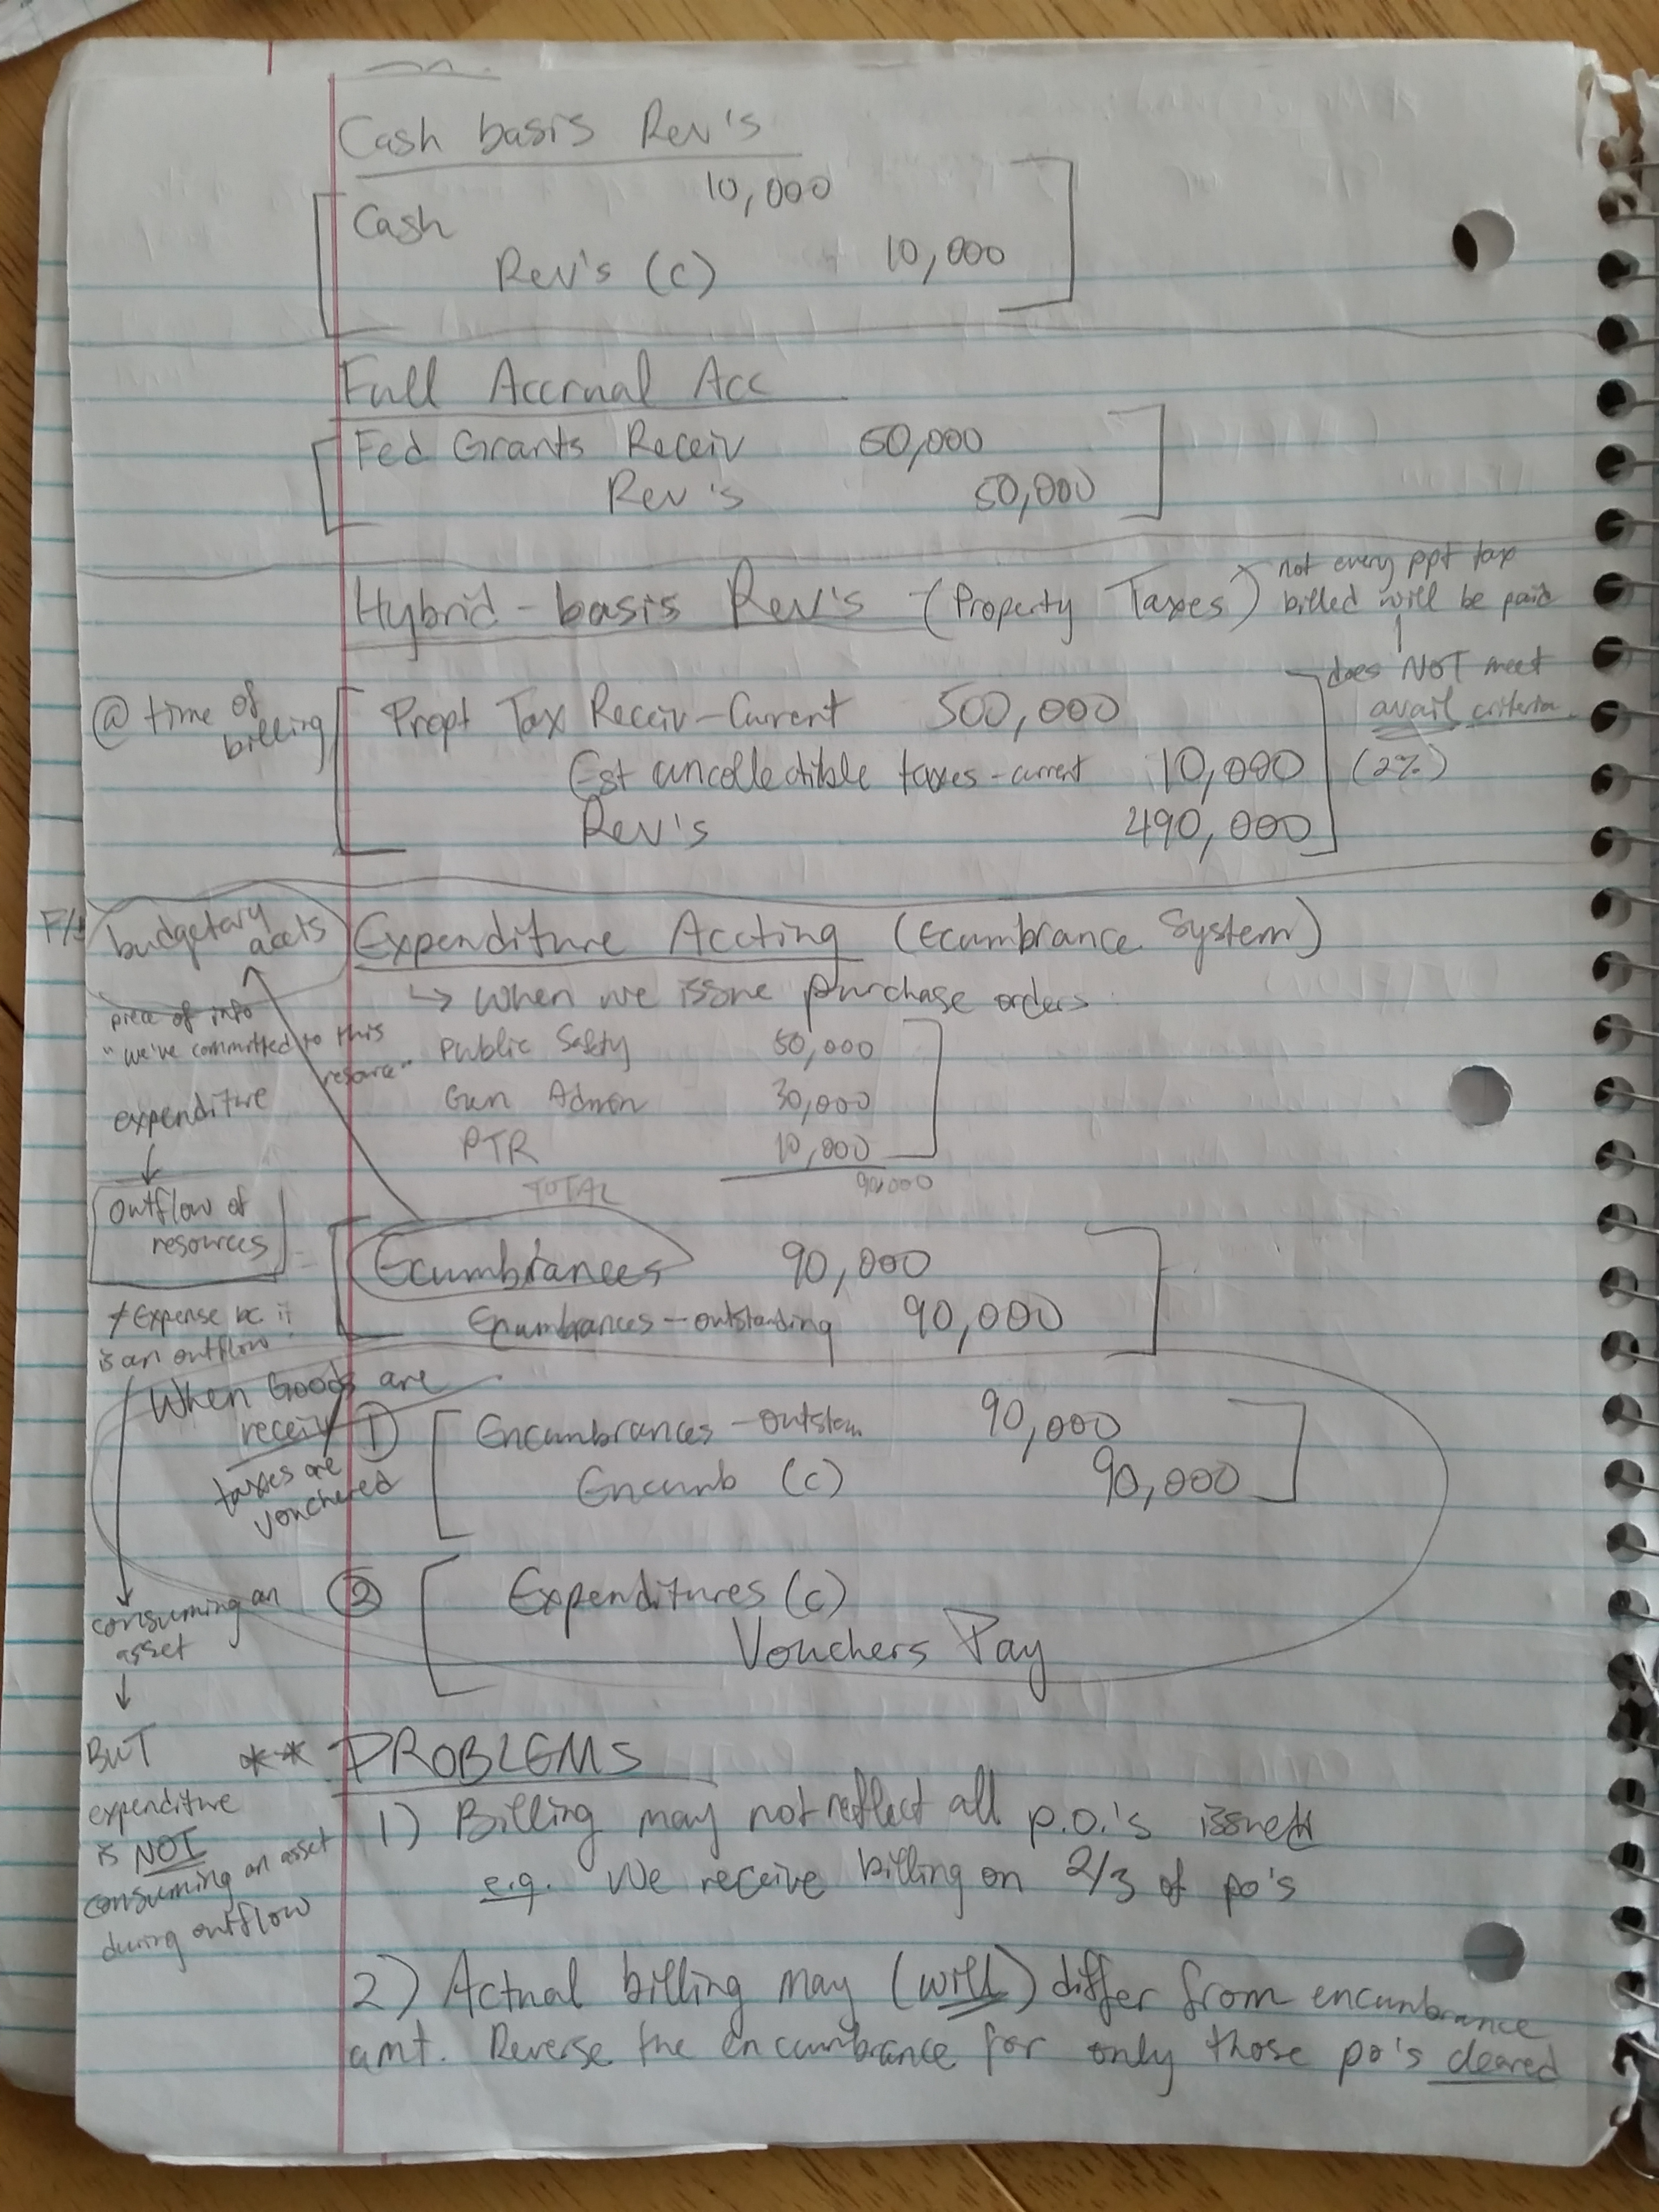 Cash basis Rev's
Cash 10,000
Rev's (c) 10,000
Full Accrual Acc
Fed Grants Receiv 50,000
Rev's 50,000
Hybrid-basis Rev's - (Property Taxes)
not every ppt tax
billed will be paid
does NOT meet
avail criteria
(2%)
@ time of
billing
Propt Tax Receiv-Current 500,000
Est uncollectible taxes-current 10,000
Rev's 490,000
budgetary
accts
Expenditure Accting (Ecumbrance System)
↳ When we issue purchase orders
piece of info
"we've committed to this
resource"
Public Safety 50,000
Gen Admin 30,000
PTR 10,000
TOTAL 90,000
expenditure
↓
outflow of
resources
Ecumbrances 90,000
Enumbrances-outstanding 90,000
≠ Expense bc it
is an outflow
When Goods are
receiv
taxes are
vouchered
① Encumbrances - outstan 90,000
Encumb (c) 90,000
② Expenditures (c)
Vouchers Pay
consuming an
asset
↓
BUT
expenditure
is NOT
consuming an asset
during outflow
** PROBLEMS
1) Billing may not reflect all p.o.'s issued
e.g. We receive billing on 2/3 of po's
2) Actual billing may (will) differ from encumbrance
amt. Reverse the encumbrance for only those po's cleared